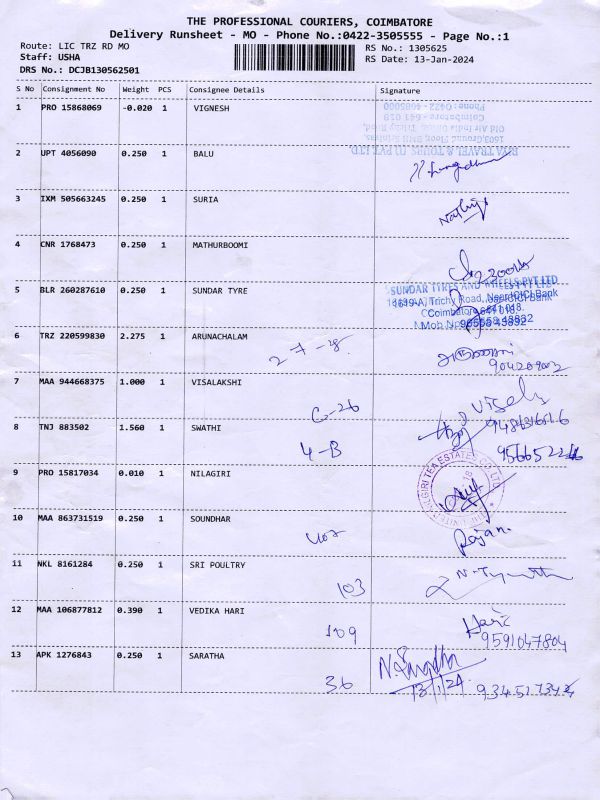 THE PROFESSIONAL COURIERS, COIMBATORE
Delivery Runsheet - MO - Phone No.:0422-3505555 - Page No.:1
Route: LIC TRZ RD MO
RS No.: 1305625
Staff: USHA
RS Date: 13-Jan-2024
DRS No.: DCJB130562501
S No Consignment No Weight PCS Consignee Details Signature
1 PRO 15868069 -0.020 1 VIGNESH
Phone : 0422 - 4085000
Coimbatore - 641 018
Old Air India Office, Trichy Road,
2 UPT 4056090 0.250 1 BALU
3 IXM 505663245 0.250 1 SURIA
4 CNR 1768473 0.250 1 MATHURBOOMI
5 BLR 260287610 0.250 1 SUNDAR TYRE
SUNDAR TYRES AND WHEELS PVT LTD
1619-A, Trichy Road, Near ICICI Bank
Coimbatore - 641 018.
6 TRZ 220599830 2.275 1 ARUNACHALAM
7 MAA 944668375 1.000 1 VISALAKSHI
C-26
8 TNJ 883502 1.560 1 SWATHI
4-B
9 PRO 15817034 0.010 1 NILAGIRI
10 MAA 863731519 0.250 1 SOUNDHAR
Rajan.
11 NKL 8161284 0.250 1 SRI POULTRY
103
12 MAA 106877812 0.390 1 VEDIKA HARI
109
Hari
9591047804
13 APK 1276843 0.250 1 SARATHA
36
13/1/24